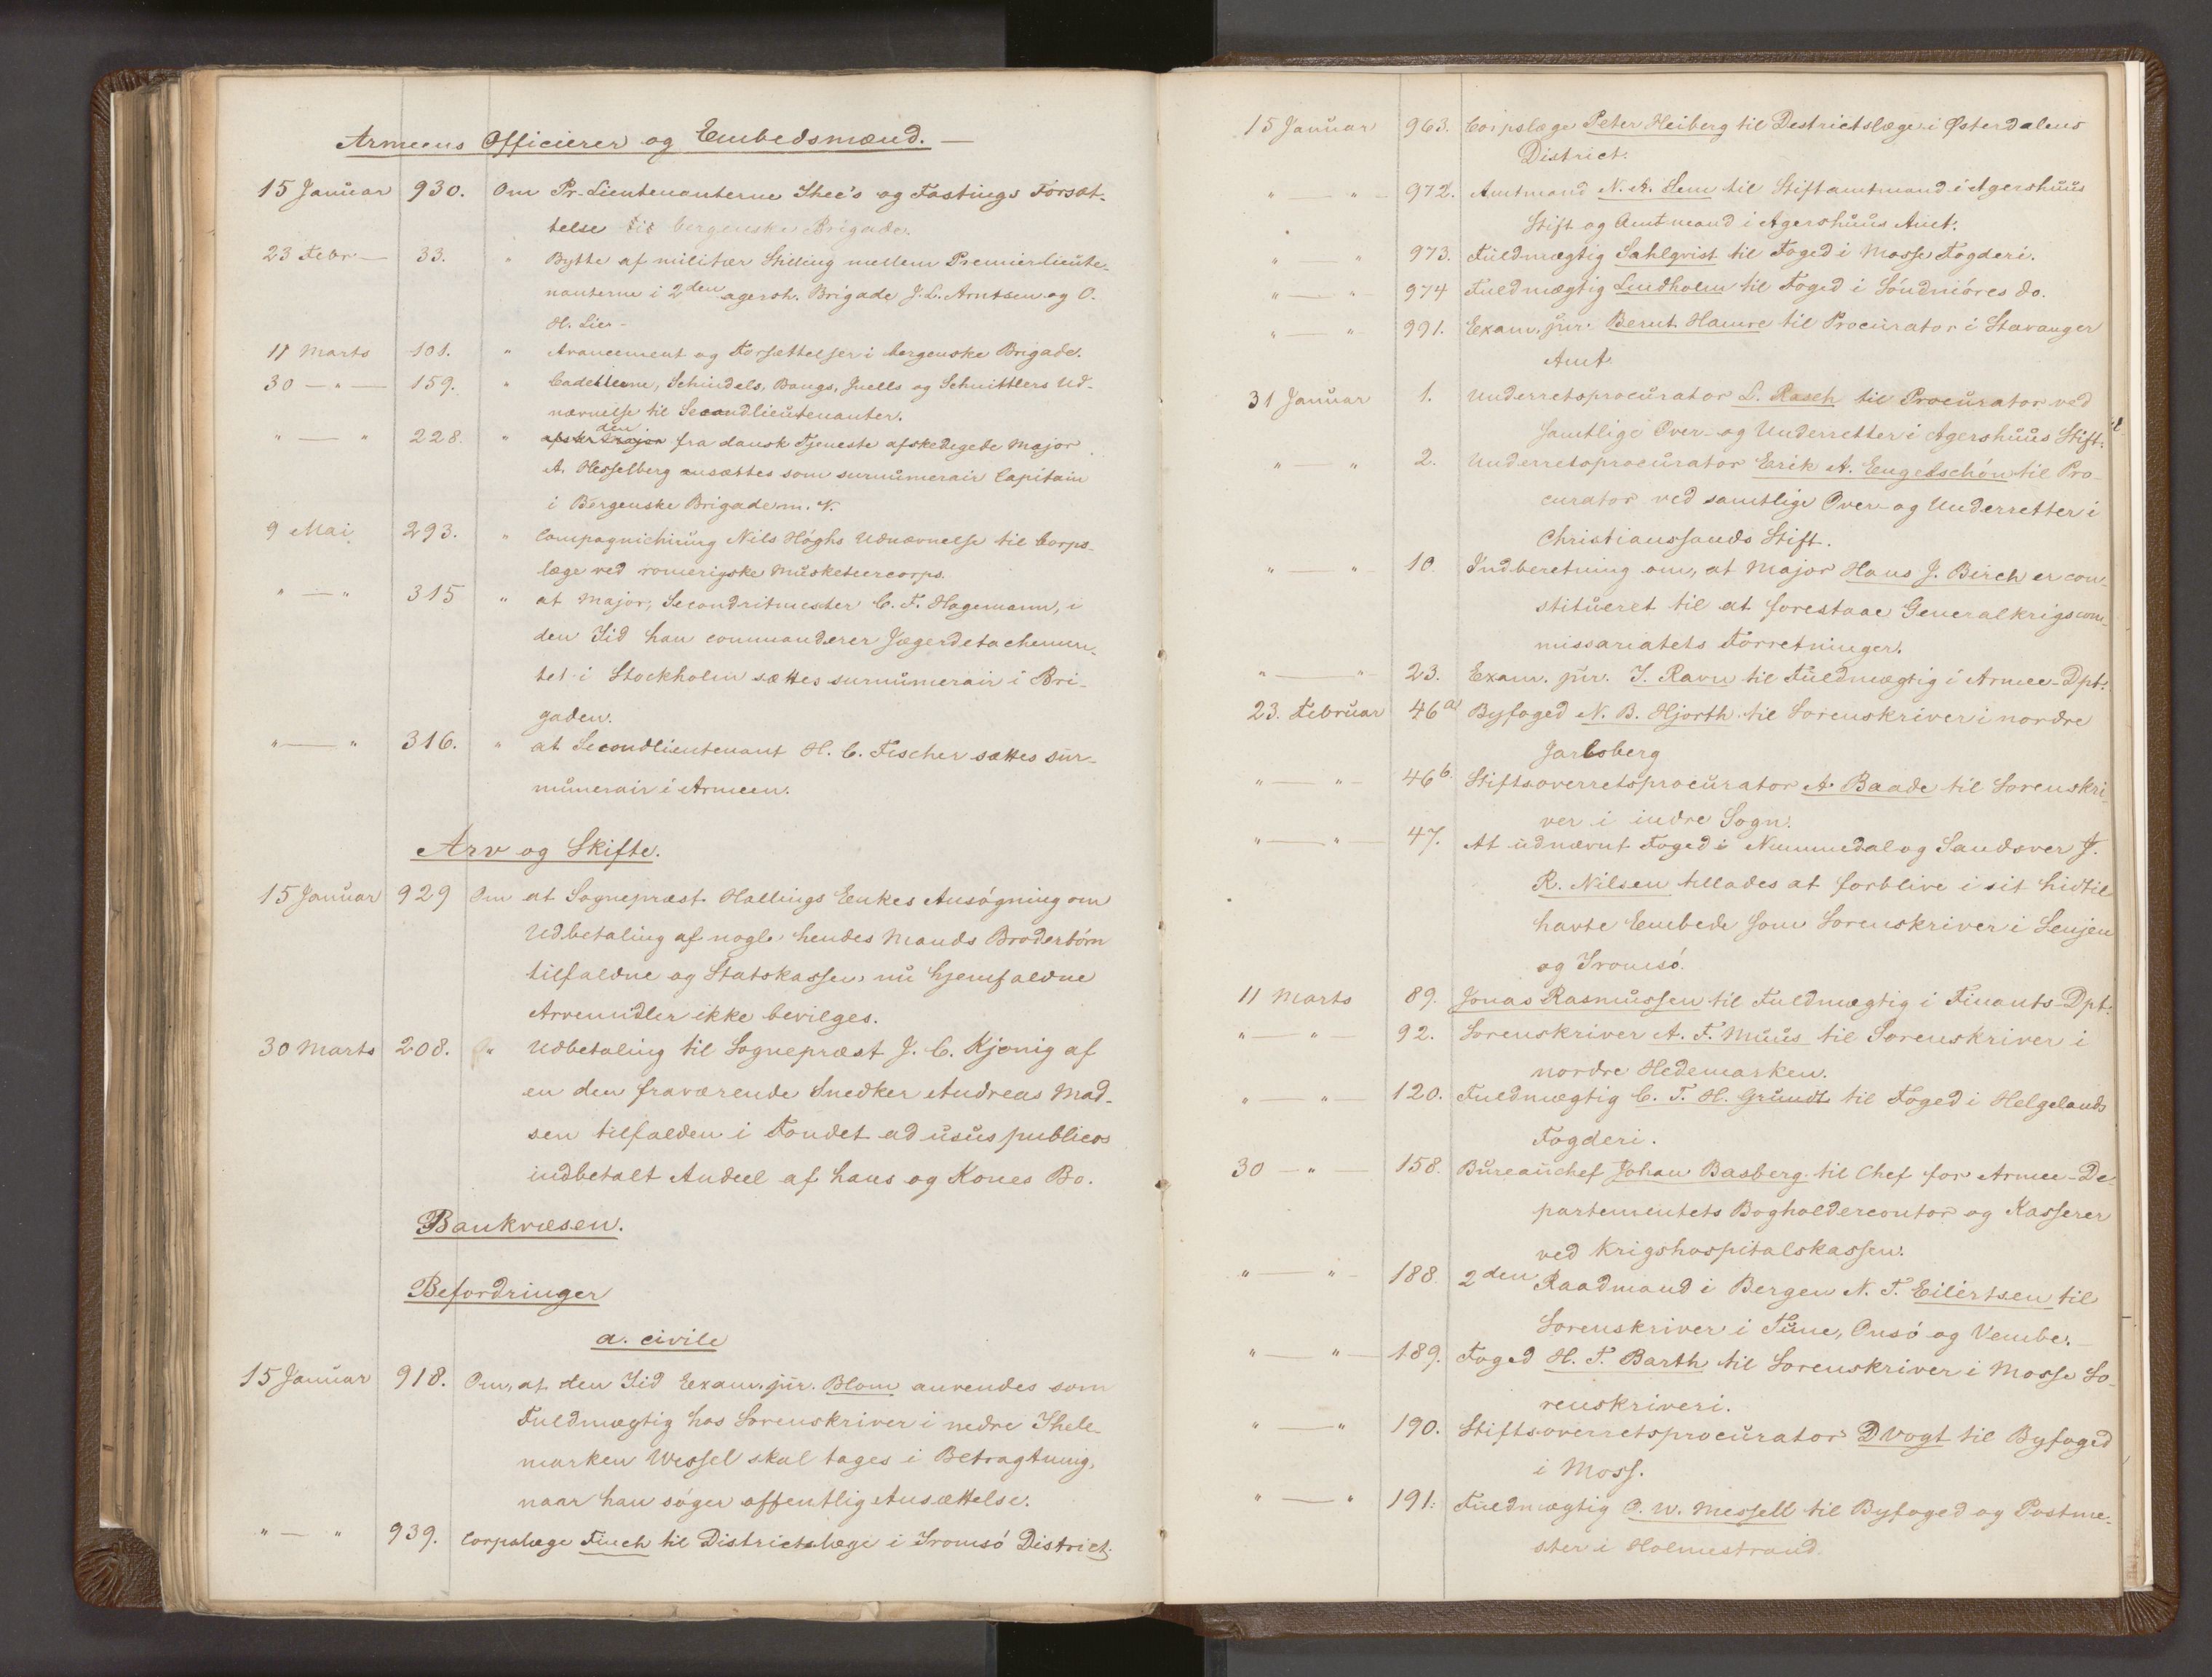 Armeens Officierer og Embedsmænd. —
15 Januar 930. Om Pr-Lieutenanterne Thee's og Fastings Forsæt-
telse til bergenske Brigade.
23 Febr — 33. " Bytte af militær Stilling mellem Premierlieute-
nanterne i 2den agersh. Brigade J. L. Arntsen og O.
H. Lie -
11 Marts 101. " Avancement og Forsættelser i bergenske Brigade.
30 — " — 159. " Cadetterne, Schindels, Bangs, Juells og Schnittlers Ud-
nævnelse til Secondlieutenanter.
" — " 228. " den fra dansk Tjeneste afskedigede Major
A. Hesselberg ansættes som surnumerair Capitain
i Bergenske Brigade m. V.
9 Mai 293. " Compagnichirurg Nils Höghs Udnævnelse til Corps-
læge ved romerigske Musketeercorps.
" — " 315 " at Major, Secondritmester C. F. Hagemann, i
den Tid han commanderer Jægerdetachemen-
tet i Stockholm sættes surnumerair i Bri-
gaden.
" — " 316. " at Secondlieutenant H. C. Fischer sættes sur-
numerair i Armeen.
Arv og Skifte.
15 Januar 929 Om at Sognepræst Hallings Enkes Ansögning om
Udbetaling af nogle hendes Mands Broderbörn
tilfaldne og Statskassen nu hjemfaldne
Arvemidler ikke bevilges.
30 Marts 208. " Udbetaling til Sognepræst J. C. Kjönig af
en den fraværende Snedker Andreas Mad-
sen tilfalden i Fondet ad usus publicos
indbetalt Andeel af hans og Kones Bo.
Bankvæsen.
Befordringer
a. civile
15 Januar 918. Om, at den Tid Exam. jur. Blom anvendes som
Fuldmægtig hos Sorenskriver i nedre Thele-
marken Wessel skal tages i Betragtning,
naar han söger offentlig Ansættelse.
" — " 939. Corpslæge Finch til Districtslæge i Tromsö District.
15 Januar 963. Corpslæge Peter Heiberg til Districtslæge i Østerdalens
District.
" — " — 972. Amtmand N. A. Lem til Stiftamtmand i Agershuus
Stift og Amtmand i Agershuus Amt.
" — " 973. Fuldmægtig Sahlqvist til Foged i Mosse Fogderi.
" — " 974 Fuldmægtig Lindholm til Foged i Söndmöres do.
" — " 991. Exam. jur. Bernt Hamre til Procurator i Stavanger
Amt.
31 Januar 1. Underretsprocurator L. Rasch til Procurator ved
samtlige Over- og Underretter i Agershuus Stift.
" " 2. Underretsprocurator Erik A. Engelschön til Pro-
curator ved samtlige Over- og Underretter i
Christianssands Stift.
" — " 10. Indberetning om, at Major Hans J. Birch er con-
stitueret til at forestaae Generalkrigscom-
missariatets Forretninger.
" — " 23. Exam. jur. J. Ravn til Fuldmægtig i Armee-Dpt.
23. Februar 46a Byfoged N. B. Hjorth til Sorenskriver i nordre
Jarlsberg
" — " — 46b. Stiftsoverretsprocurator A. Baade til Sorenskri-
ver i indre Sogn.
" — " — 47. At udnævnt Foged i Nummedal og Sandsver J.
R. Nilsen tillades at forblive i sit hidtil
havte Embede som Sorenskriver i Senjen
og Tromsö.
11 Marts 89. Jonas Rasmussen til Fuldmægtig i Finants-Dpt.
" — " — 92. Sorenskriver A. F. Muus til Sorenskriver i
nordre Hedemarken.
" — " — 120. Fuldmægtig C. T. H. Grundt til Foged i Helgelands
Fogderi.
30 — " — 158. Bureauchef Johan Basberg til Chef for Armee-De-
partementets Bogholdercontor og Kasserer
ved Krigshospitalskassen.
" — " — 188. 2den Raadmand i Bergen N. T. Eilertsen til
Sorenskriver i Tune, Onsö og Vembe.
" — " — 189. Foged H. T. Barth til Sorenskriver i Mosse So-
renskriveri.
" — " 190. Stiftsoverretsprocurator D Vogt til Byfoged
i Moss.
" — " 191. Fuldmægtig O. W. Messell til Byfoged og Postme-
ster i Holmestrand